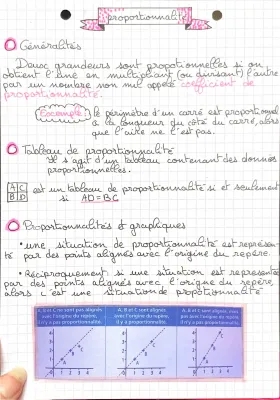 proportionnalité
Généralités
Deux grandeurs sont proportionnelles si on
obtient l'une en multipliant (ou divisant) l'autre
par un nombre non nul appelé coefficient de
proportionnalité.
Exemple : le périmètre d'un carré est proportionnel
à la longueur du côté du carré, alors
que l'aire ne l'est pas.
Tableau de proportionnalité
Il s'agit d'un tableau contenant des données
proportionnelles.
A C
B D
est un tableau de proportionnalité si et seulement
si AD=BC
Proportionnalités et graphiques
• une situation de proportionnalité est représen-
té par des points alignés avec l'origine du repère
• Réciproquement si une situation est représentée
par des points alignés avec l'origine du repère
alors c'est une situation de proportionnalité
A, B et C ne sont pas alignés
avec l'origine du repère,
il n'y a pas proportionnalité.
A, B et C sont alignés
avec l'origine du repère,
il y a proportionnalité.
A, B et C sont alignés, mais
pas avec l'origine du repère,
il n'y a pas proportionnalité.